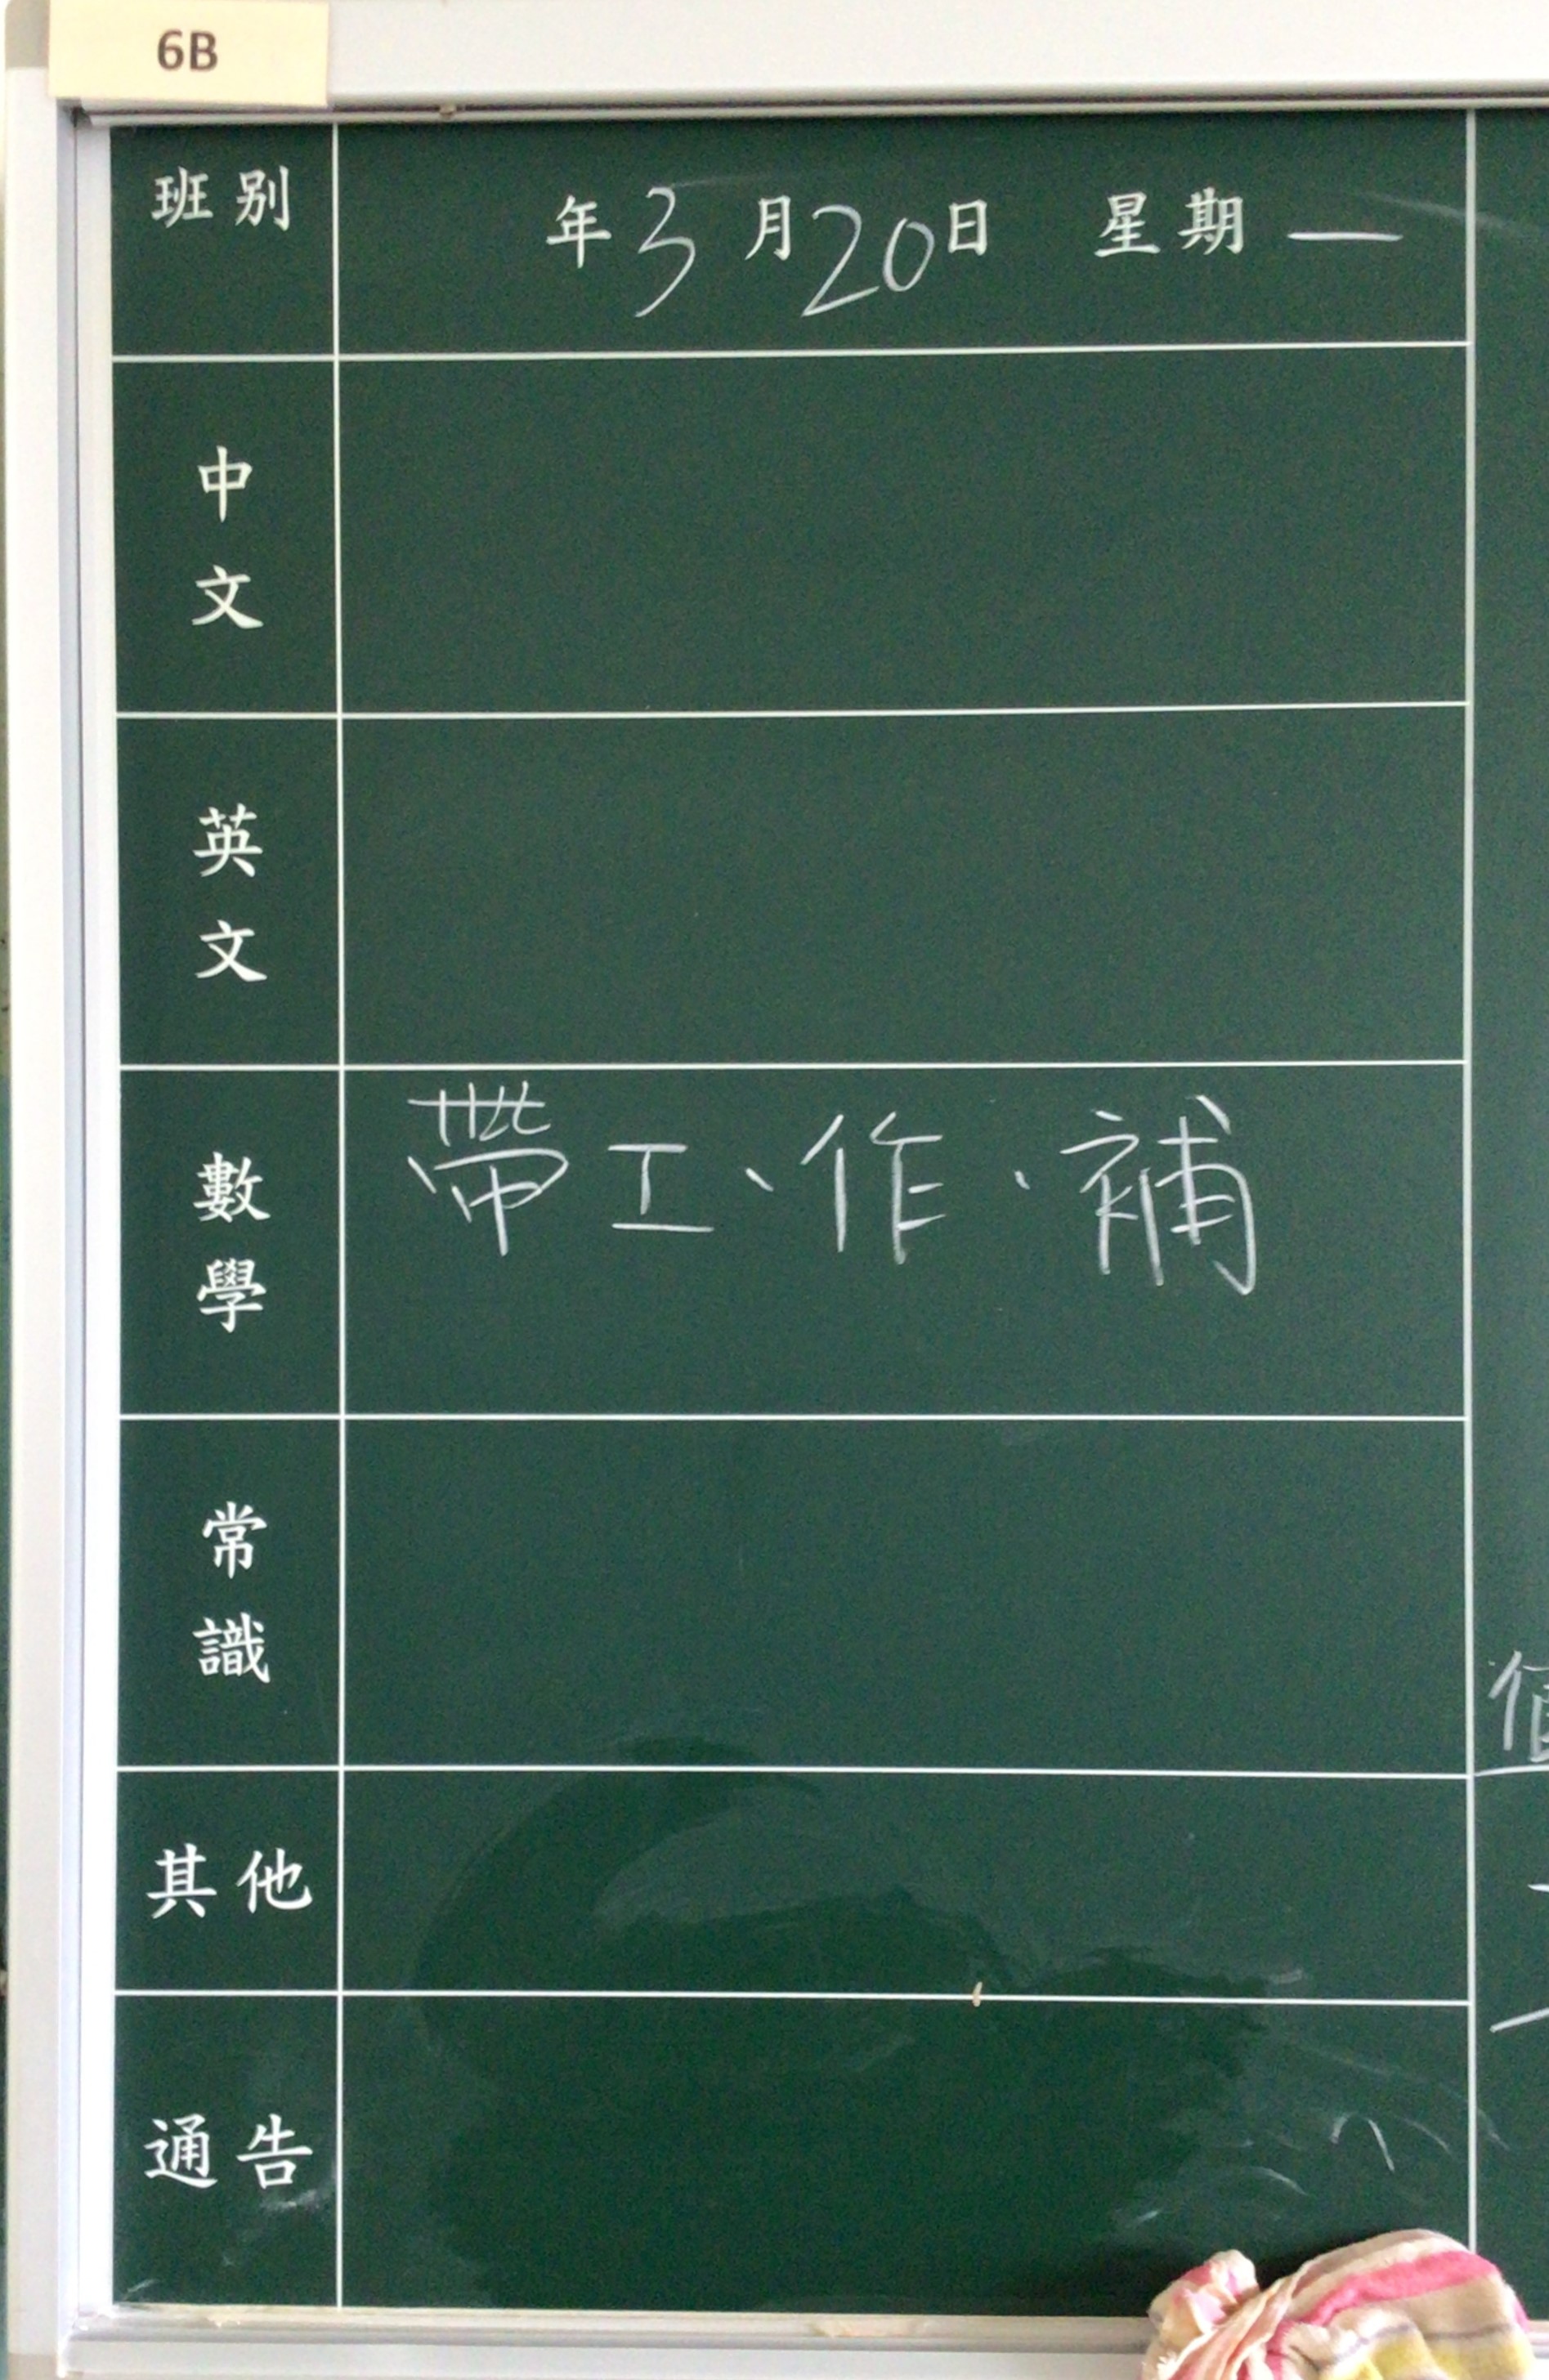 6B
班別 年3月20日 星期一
中
文
英
文
數
學
帶工、作、補
常
識
其他
通告
值